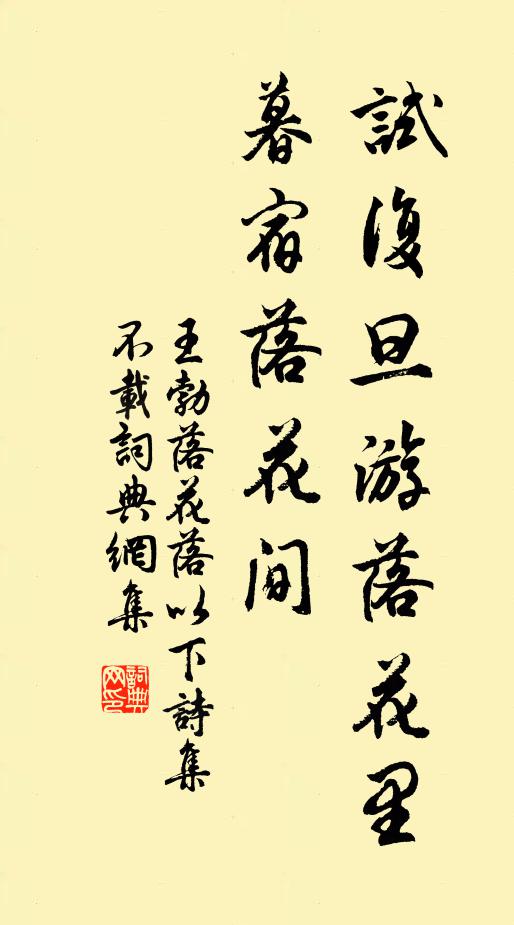 試復旦游落花里
暮宿落花間
王勃落花落以下詩集
不載詞典網集
詞典網印